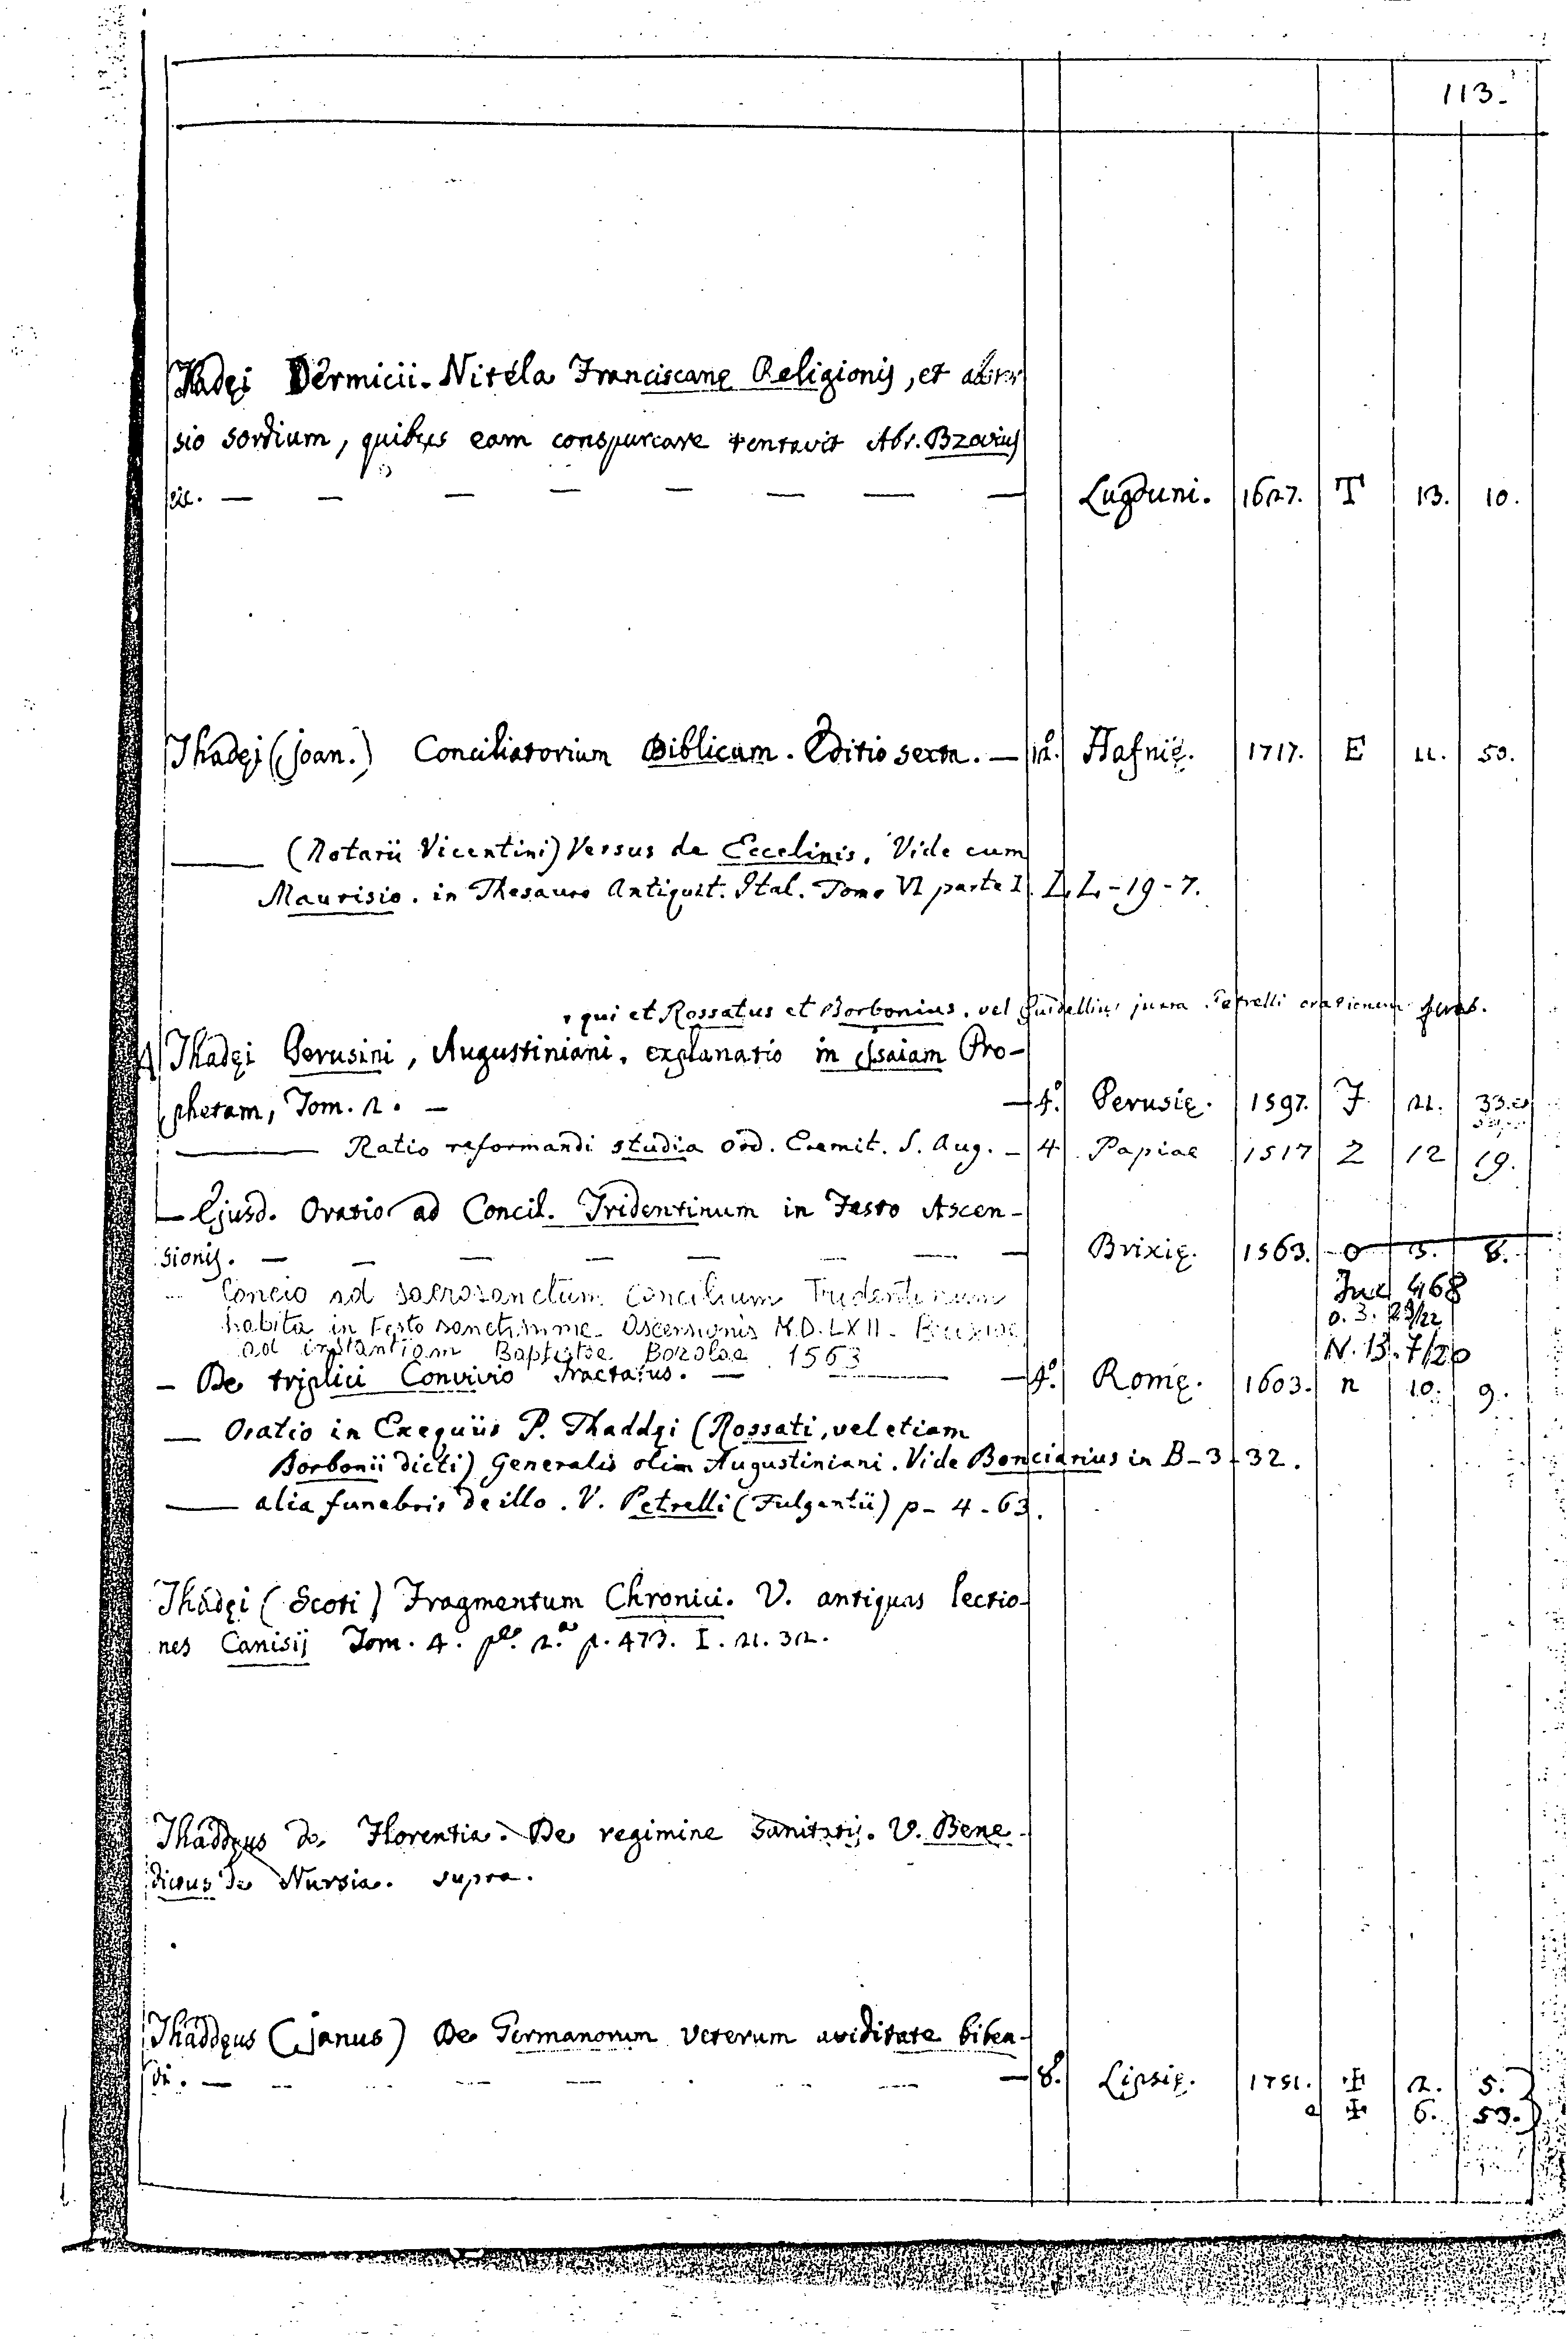 113.
Thadęi Dermicii. Nitela Franciscanę Religionis, et abster
sio sordium, quibus eam conspurcare tentavit Abr. Bzovius
etc. — — — — — — — — Lugduni. 1627. T 13. 10.
Thadęi (Joan.) Conciliatorium Biblicum. Editio sexta. — 12.° Hafnię. 1717. E 11. 50.
—— (Notarii Vicentini) Versus de Eccelinis. Vide cum
Maurisio. in Thesauro Antiquit. Ital. Tomo VI parte I. L L - 19 - 7.
, qui et Rossatus et Borbonius. vel Guidellius juxta Petrelli orationem funeb.
Thadęi Perusini, Augustiniani, explanatio in Isaiam Pro-
phetam, Tom. 2. — — 4.° Perusię. 1597. J 21. 33.
—— Ratio reformandi studia ord. Eremit. S. Aug. — 4 Papiae 1517 Z 12 19.
— Ejusd. Oratio ad Concil. Tridentinum in Festo Ascen-
sionis. — — — — — — — — Brixię. 1563. o 3. 8.
Concio ad sacrosanctum concilium Tridentinum
habita in Festo sanctissimae Ascensionis M.D.LXII. Brixiae
ad instantiam Baptistae Bozolae 1563
Inc 468
o. 3. 29/22
N. 13. 7/20
— De triplici Convivio Tractatus. — — — 4.° Romę. 1603. n 10. 9.
— Oratio in Exequiis P. Thaddęi (Rossati, vel etiam
Borbonii dicti) Generalis olim Augustiniani. Vide Bonciarius in B - 3 - 32.
—— alia funebris de illo. V. Petrelli (Fulgentii) p - 4 - 63.
Thadęi (Scoti) Fragmentum Chronici. V. antiquas lectio-
nes Canisij Tom. 4. p.e 2.a p. 473. I. 21. 32.
Thaddęus de Florentia. De regimine Sanitatis. V. Bene-
dictus de Nursia. supra.
Thaddęus (Janus) De Germanorum veterum aviditate biben-
di. — — — — — — — — 8.° Lipsię. 1751. ✠ 2. 5.
e ✠ 6. 53.